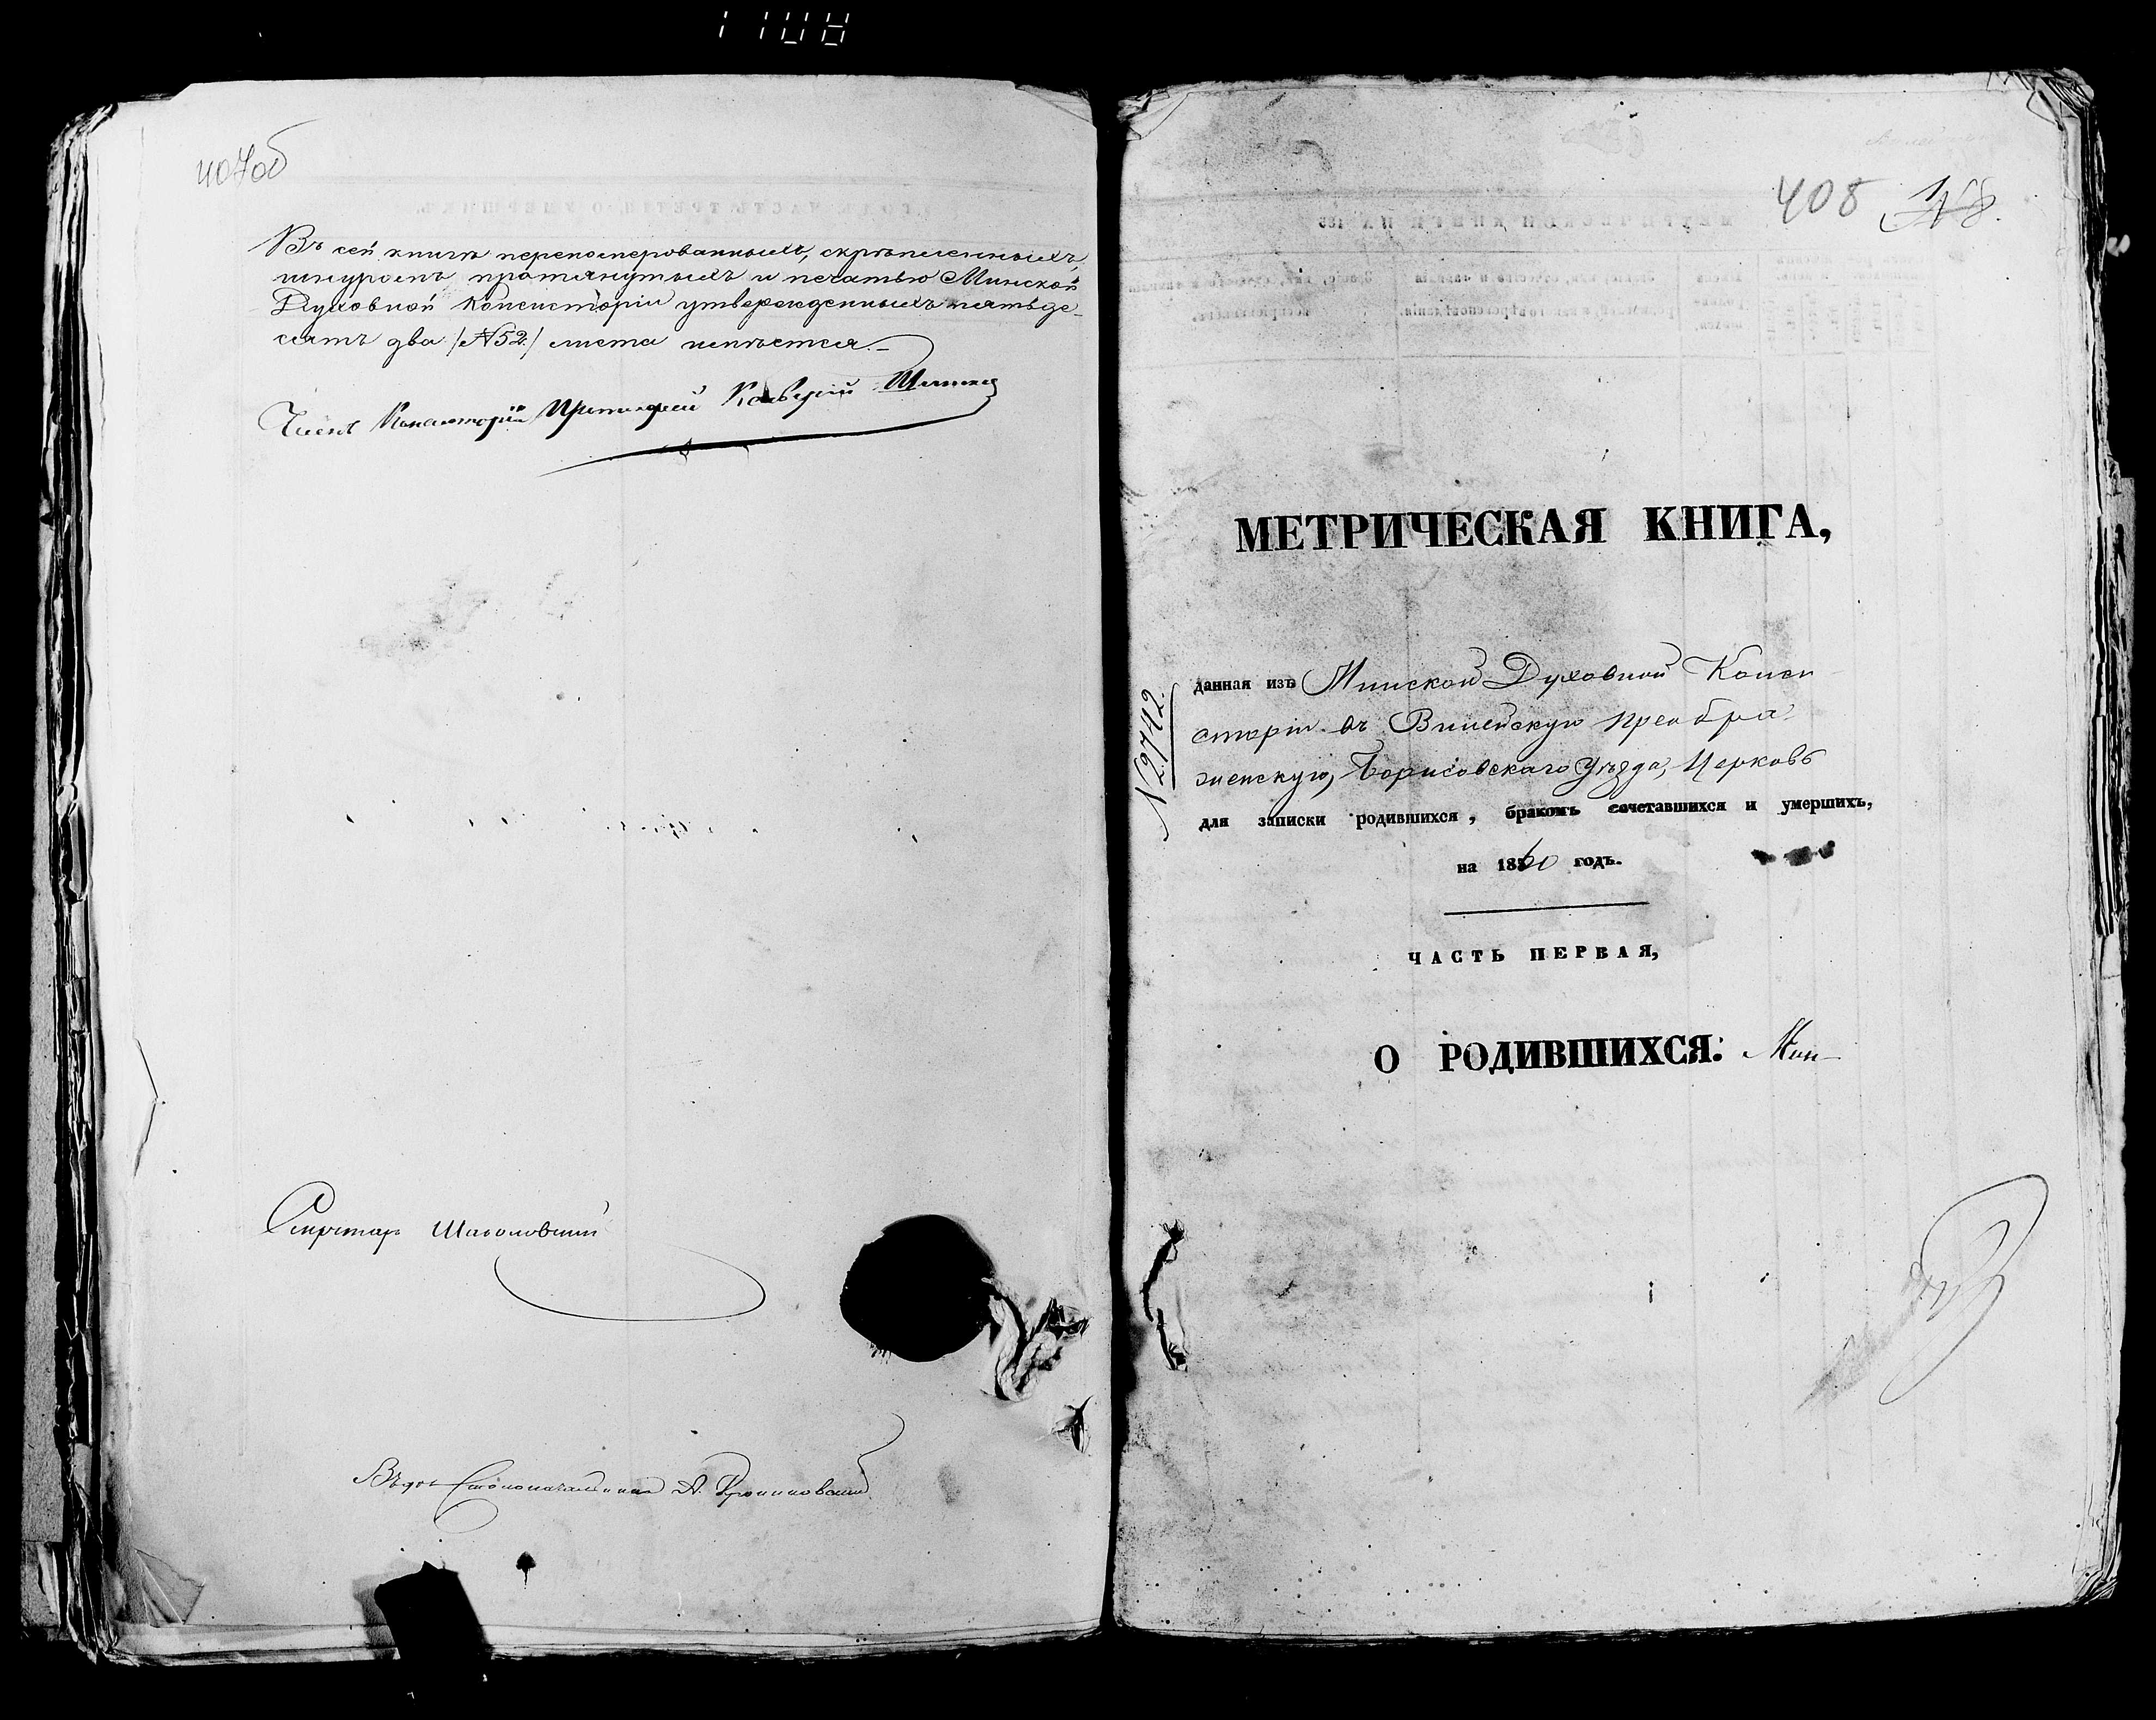 407об
Въ сей книгѣ перепомерованныхъ, скрѣпленныхъ,
шнуромъ протянутыхъ и печатью Минской
Духовной Консисторіи утвержденныхъ пятьде-
сятъ два /№52/ листа имѣется.
Членъ Консисторіи Протоіерей
Секретарь
Столоначальника А.
408 №8.
МЕТРИЧЕСКАЯ КНИГА,
№2742.
данная изъ Минской Духовной Конси
сторіи въ Вилейскую Преобра
женскую, Борисовскаго Уѣзда, Церковь
для записки родившихся, бракомъ сочетавшихся и умершихъ,
на 1860 годъ.
ЧАСТЬ ПЕРВАЯ,
О РОДИВШИХСЯ: Мин-